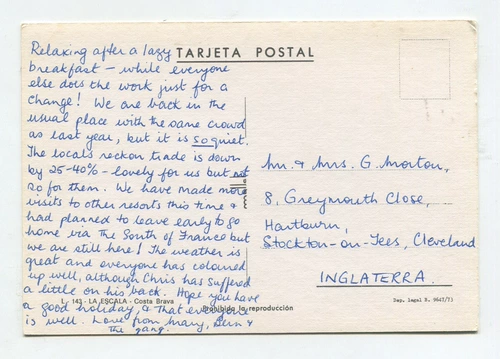 TARJETA POSTAL
Relaxing after a lazy
breakfast – while everyone
else does the work just for a
change! We are back in the
usual place with the same crowd
as last year, but it is so quiet.
The locals reckon trade is down
by 25-40% – lovely for us but not
so for them. We have made more
visits to other resorts this time &
had planned to leave early to go
home via the South of France but
we are still here! The weather is
great and everyone has coloured
up well, although Chris has suffered
a little on his back. Hope you have
a good holiday, & that everyone
is well. Love from Mary, &
the gang.
L. 143 - LA ESCALA - Costa Brava
Prohibida la reproducción
Mr. & Mrs. G. Morton,
8, Greymouth Close,
Hartburn,
Stockton-on-Tees, Cleveland
INGLATERRA.
Dep. legal B.